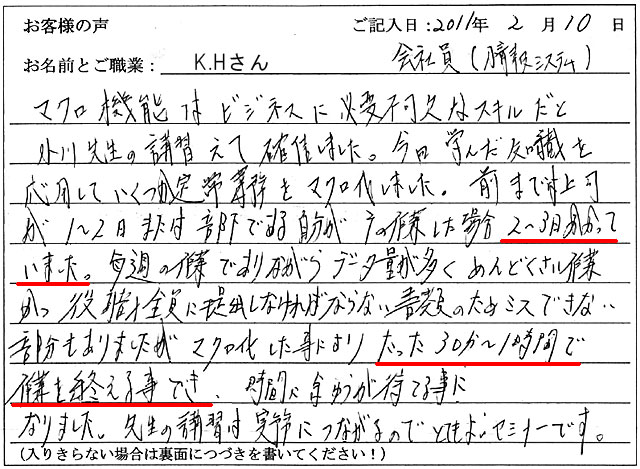 お客様の声 ご記入日：2011年 2 月 10 日
お名前とご職業： K.Hさん 会社員（情報システム）
マクロ機能はビジネスに必要不可欠なスキルだと
外川先生の講習えて確信しました。今回学んだ知識を
応用していくつか定常業務をマクロ化しました。前まで上司
が1〜2日または部下である自分が 作業した場合2〜3日かかって
いました。毎週の作業でありながらデータ量が多くめんどくさい作業
かつ役 全員に提出しなければならない書類のためミスできない
部分もありましたがマクロ化した事によりたった30分〜1時間で
作業を終える事でき、時間に余ゆうが持てる事に
なりました。先生の講習は実務につながるのでとてもよいセミナーです。
(入りきらない場合は裏面につづきを書いてください！)